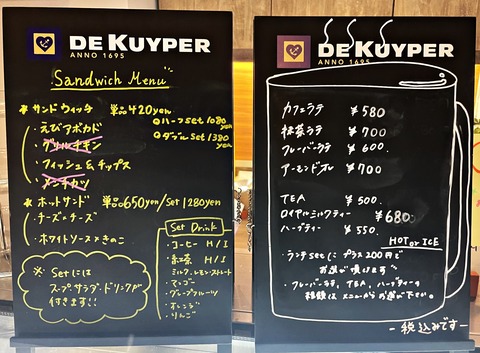 DE KUYPER
ANNO 1695
Sandwich Menu
★サンドウィッチ 単品420yen
・えびアボカド
・グリルチキン
・フィッシュ&チップス
・メンチカツ
●ハーフset 1080yen
●ダブルset 1380yen
★ホットサンド 単品650yen/Set 1280yen
・チーズ×チーズ
・ホワイトソース×きのこ
※ Setには
スープ、サラダ、ドリンクが
付きます!!
Set Drink
・コーヒー H/I
・紅茶 H/I
ミルク、レモン、ストレート
・マンゴー
・グレープフルーツ
・オレンジ
・りんご
DE KUYPER
ANNO 1695
カフェラテ ¥580
抹茶ラテ ¥700
フレーバーラテ ¥600.
アーモンドオレ ¥700
TEA ¥500.
ロイヤルミルクティー ¥680
ハーブティー ¥550.
HOT or ICE
・ランチsetに プラス200円で
お選び頂けます
・フレーバーラテ、TEA、ハーブティーの
種類はメニューからお選び下さい。
-税込みです-